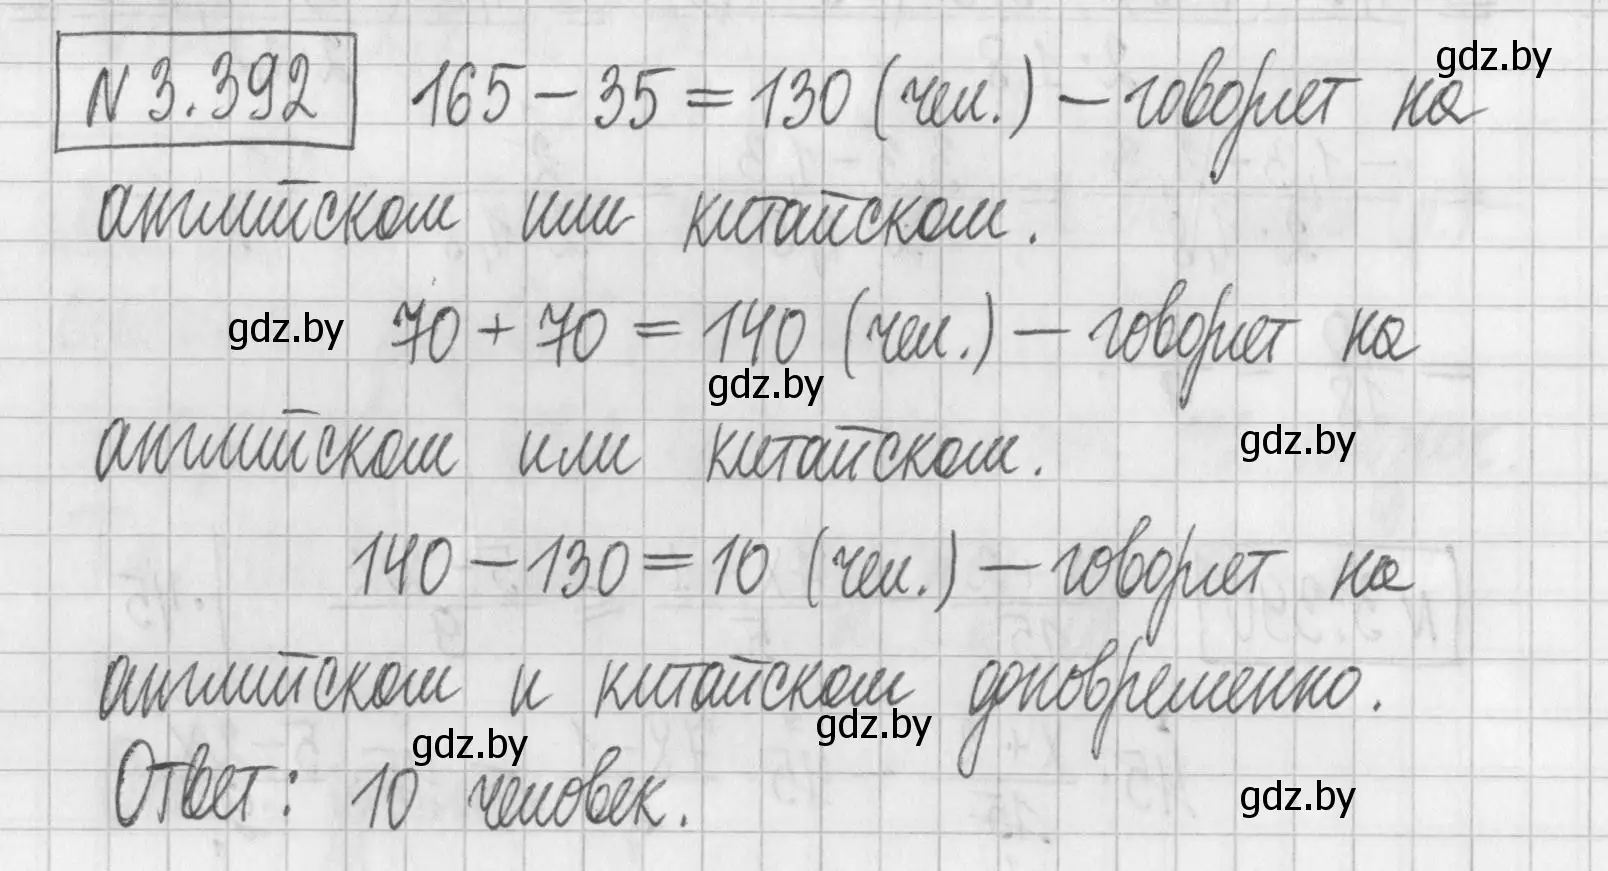 N 3.392 165 - 35 = 130 (чел.) – говорят на gdz.by
английском или китайском.
gdz.by 70 + 70 = 140 (чел.) – говорят на
gdz.by
английском или китайском. gdz.by
140 - 130 = 10 (чел.) – говорят на
английском и китайском дноовременно.
gdz.by gdz.by
Ответ: 10 человек. gdz.by